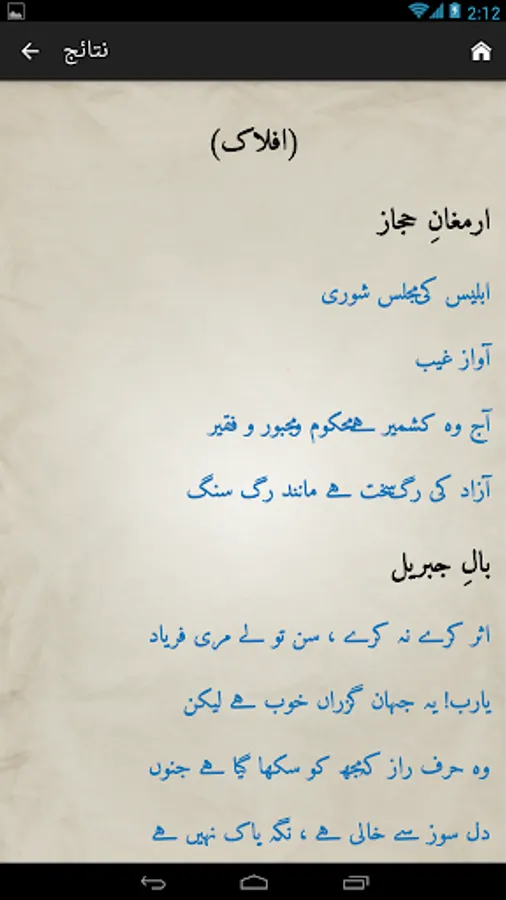 2:12
نتائج
(افلاک)
ارمغانِ حجاز
ابلیس کی مجلس شوری
آواز غیب
آج وہ کشمیر ہے محکوم و مجبور و فقیر
آزاد کی رگ سخت ہے مانند رگ سنگ
بالِ جبریل
اثر کرے نہ کرے ، سن تو لے مری فریاد
یارب! یہ جہان گزراں خوب ہے لیکن
وہ حرف راز کہ مجھ کو سکھا گیا ہے جنوں
دل سوز سے خالی ہے ، نگہ پاک نہیں ہے